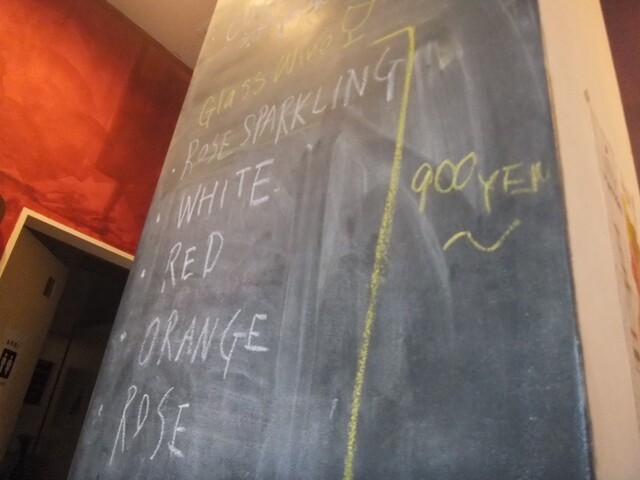 Glass Wine
・ROSE SPARKLING
・WHITE
・RED
・ORANGE
・ROSE
900 YEN
～